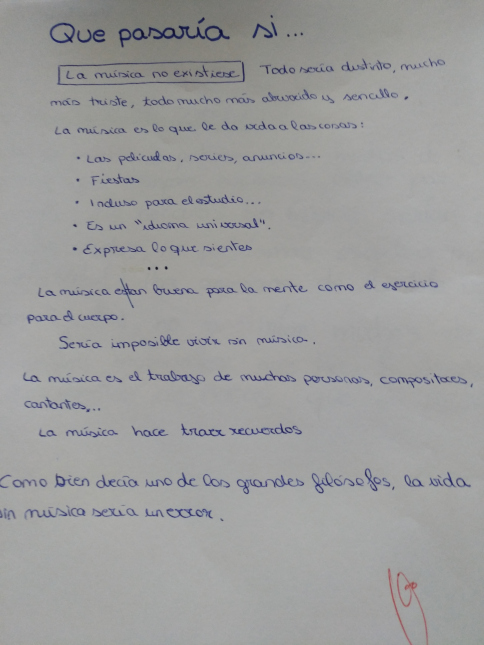 Que pasaría si...
La música no existiese Todo sería distinto, mucho
más triste, todo mucho más aburrido y sencillo.
La música es lo que le da vida a las cosas:
• Las películas, series, anuncios...
• Fiestas
• Incluso para el estudio...
• Es un "idioma universal".
• Expresa lo que sientes
...
La música es tan buena para la mente como el ejercicio
para el cuerpo.
Sería imposible vivir sin música.
La música es el trabajo de muchas personas, compositores,
cantantes,..
La música hace traer recuerdos
Como bien decía uno de los grandes filósofos, la vida
sin música sería un error.